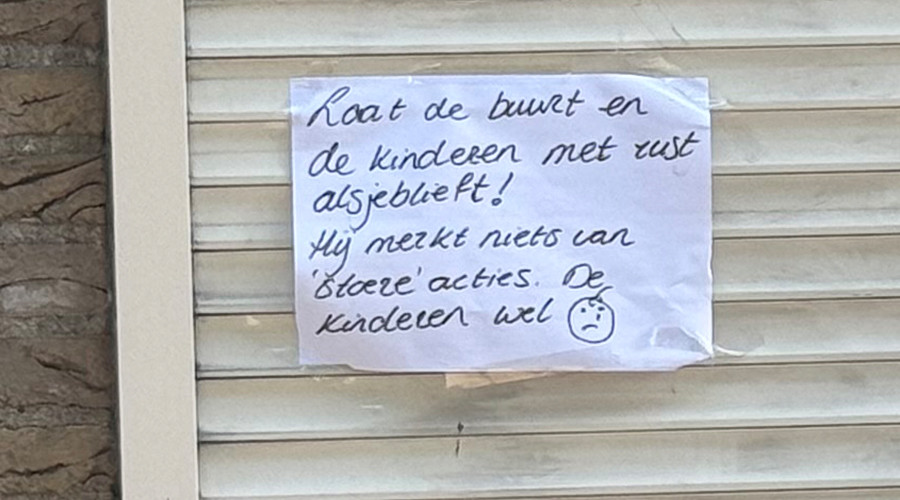 Laat de buurt en
de kinderen met rust
alsjeblieft!
Hij merkt niets van
'stoere' acties. De
kinderen wel